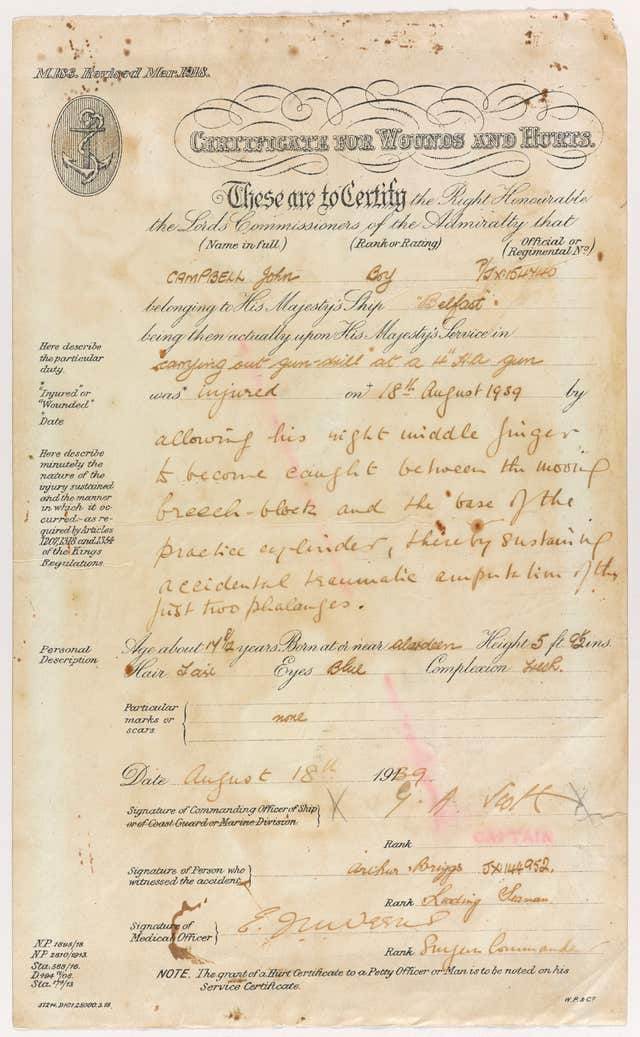 M.183. Revised Mar. 1918.
CERTIFICATE FOR WOUNDS AND HURTS.
These are to Certify the Right Honourable
the Lords Commissioners of the Admiralty that
(Name in full) (Rank or Rating) (Official or Regimental No)
CAMPBELL John Boy P/JX154740
belonging to His Majesty's Ship "Belfast".
being then actually upon His Majesty's Service in
Here describe
the particular
duty.
"carrying out gun-drill" at a 4" HA gun
* "Injured" or
"Wounded"
+ Date
was * injured on + 18th August 1939 by
Here describe
minutely the
nature of the
injury sustained
and the manner
in which it oc-
curred:- as re-
quired by Articles
1207, 1318 and 1334
of the Kings
Regulations.
allowing his right middle finger
to become caught between the moving
breech-block and the base of the
practice cylinder, thereby sustaining
accidental traumatic amputation of the
first two phalanges.
Personal
Description
Age about 17 1/2 years. Born at or near Aberdeen Height 5 ft. ins.
Hair Fair Eyes Blue Complexion Fresh.
Particular
marks or
scars.
none
Date August 18th 1939
Signature of Commanding Officer of Ship
or of Coast Guard or Marine Division
G. A. Scott
Rank CAPTAIN
Signature of Person who
witnessed the accident
Arthur Briggs JX144952.
Rank Leading Seaman
Signature of
Medical Officer
E.
Rank Surgeon Commander
N.P. 1895/18.
N.P. 2810/1913.
Sta: 583/16.
NOTE. The grant of a Hurt Certificate to a Petty Officer or Man is to be noted on his
Service Certificate.
W.P. & Co.